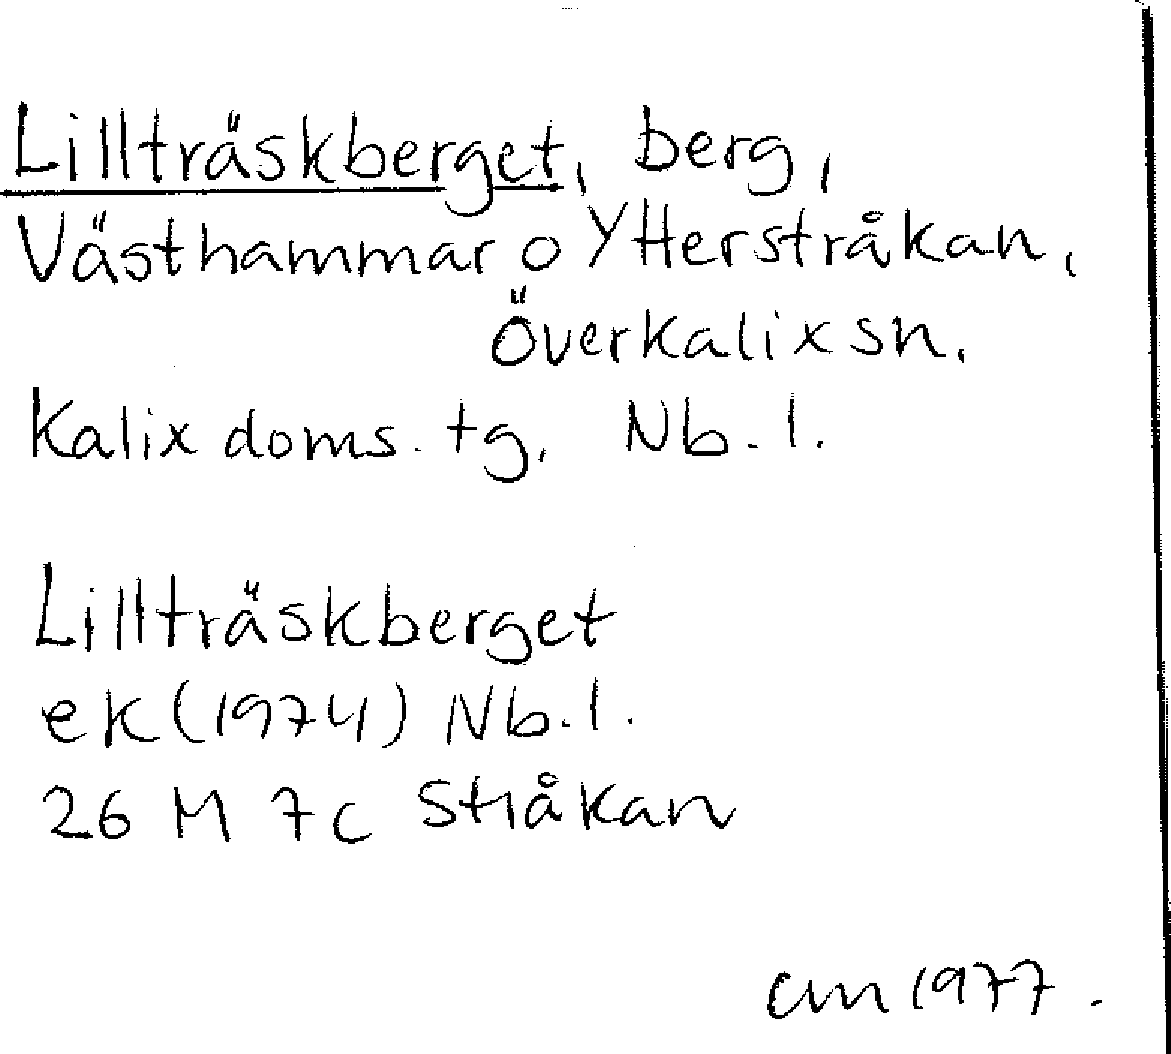 Lillträskberget, berg,
Västhammar o Ytterstråkan,
Överkalix sn.
Kalix doms. tg. Nb. l.
Lillträskberget
ek (1974) Nb. l.
26 M 7c Stråkan
cm 1977.